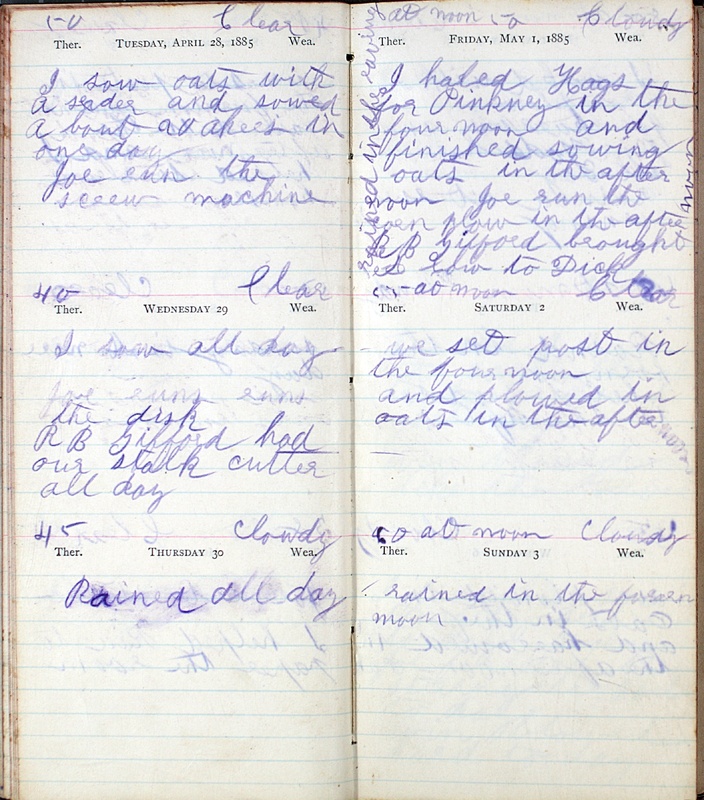 50 Clear
Ther. TUESDAY, APRIL 28, 1885 Wea.
I sow oats with
a seader and sowed
a bout acakers in
one day
Joe run the
screw machine
40 Clear
Ther. WEDNESDAY 29 Wea.
I sow all day
Joe runs runs
the disk
R B Gifford had
our stalk cutter
all day
45 Cloudy
Ther. THURSDAY 30 Wea.
Rained all day
at noon 50 Cloudy
Ther. FRIDAY, MAY 1, 1885 Wea.
I haled Hogs
for Pinkney in the
four noon and
finished sowing
oats in the after
noon Joe run the
plow in the after
noon
R B Gifford brought
sow to Dick
rained in the eaving
55 at noon Clear
Ther. SATURDAY 2 Wea.
we set post in
the four noon
and plowed in
oats in the after
noon
50 at noon Cloudy
Ther. SUNDAY 3 Wea.
rained in the foreen
moon